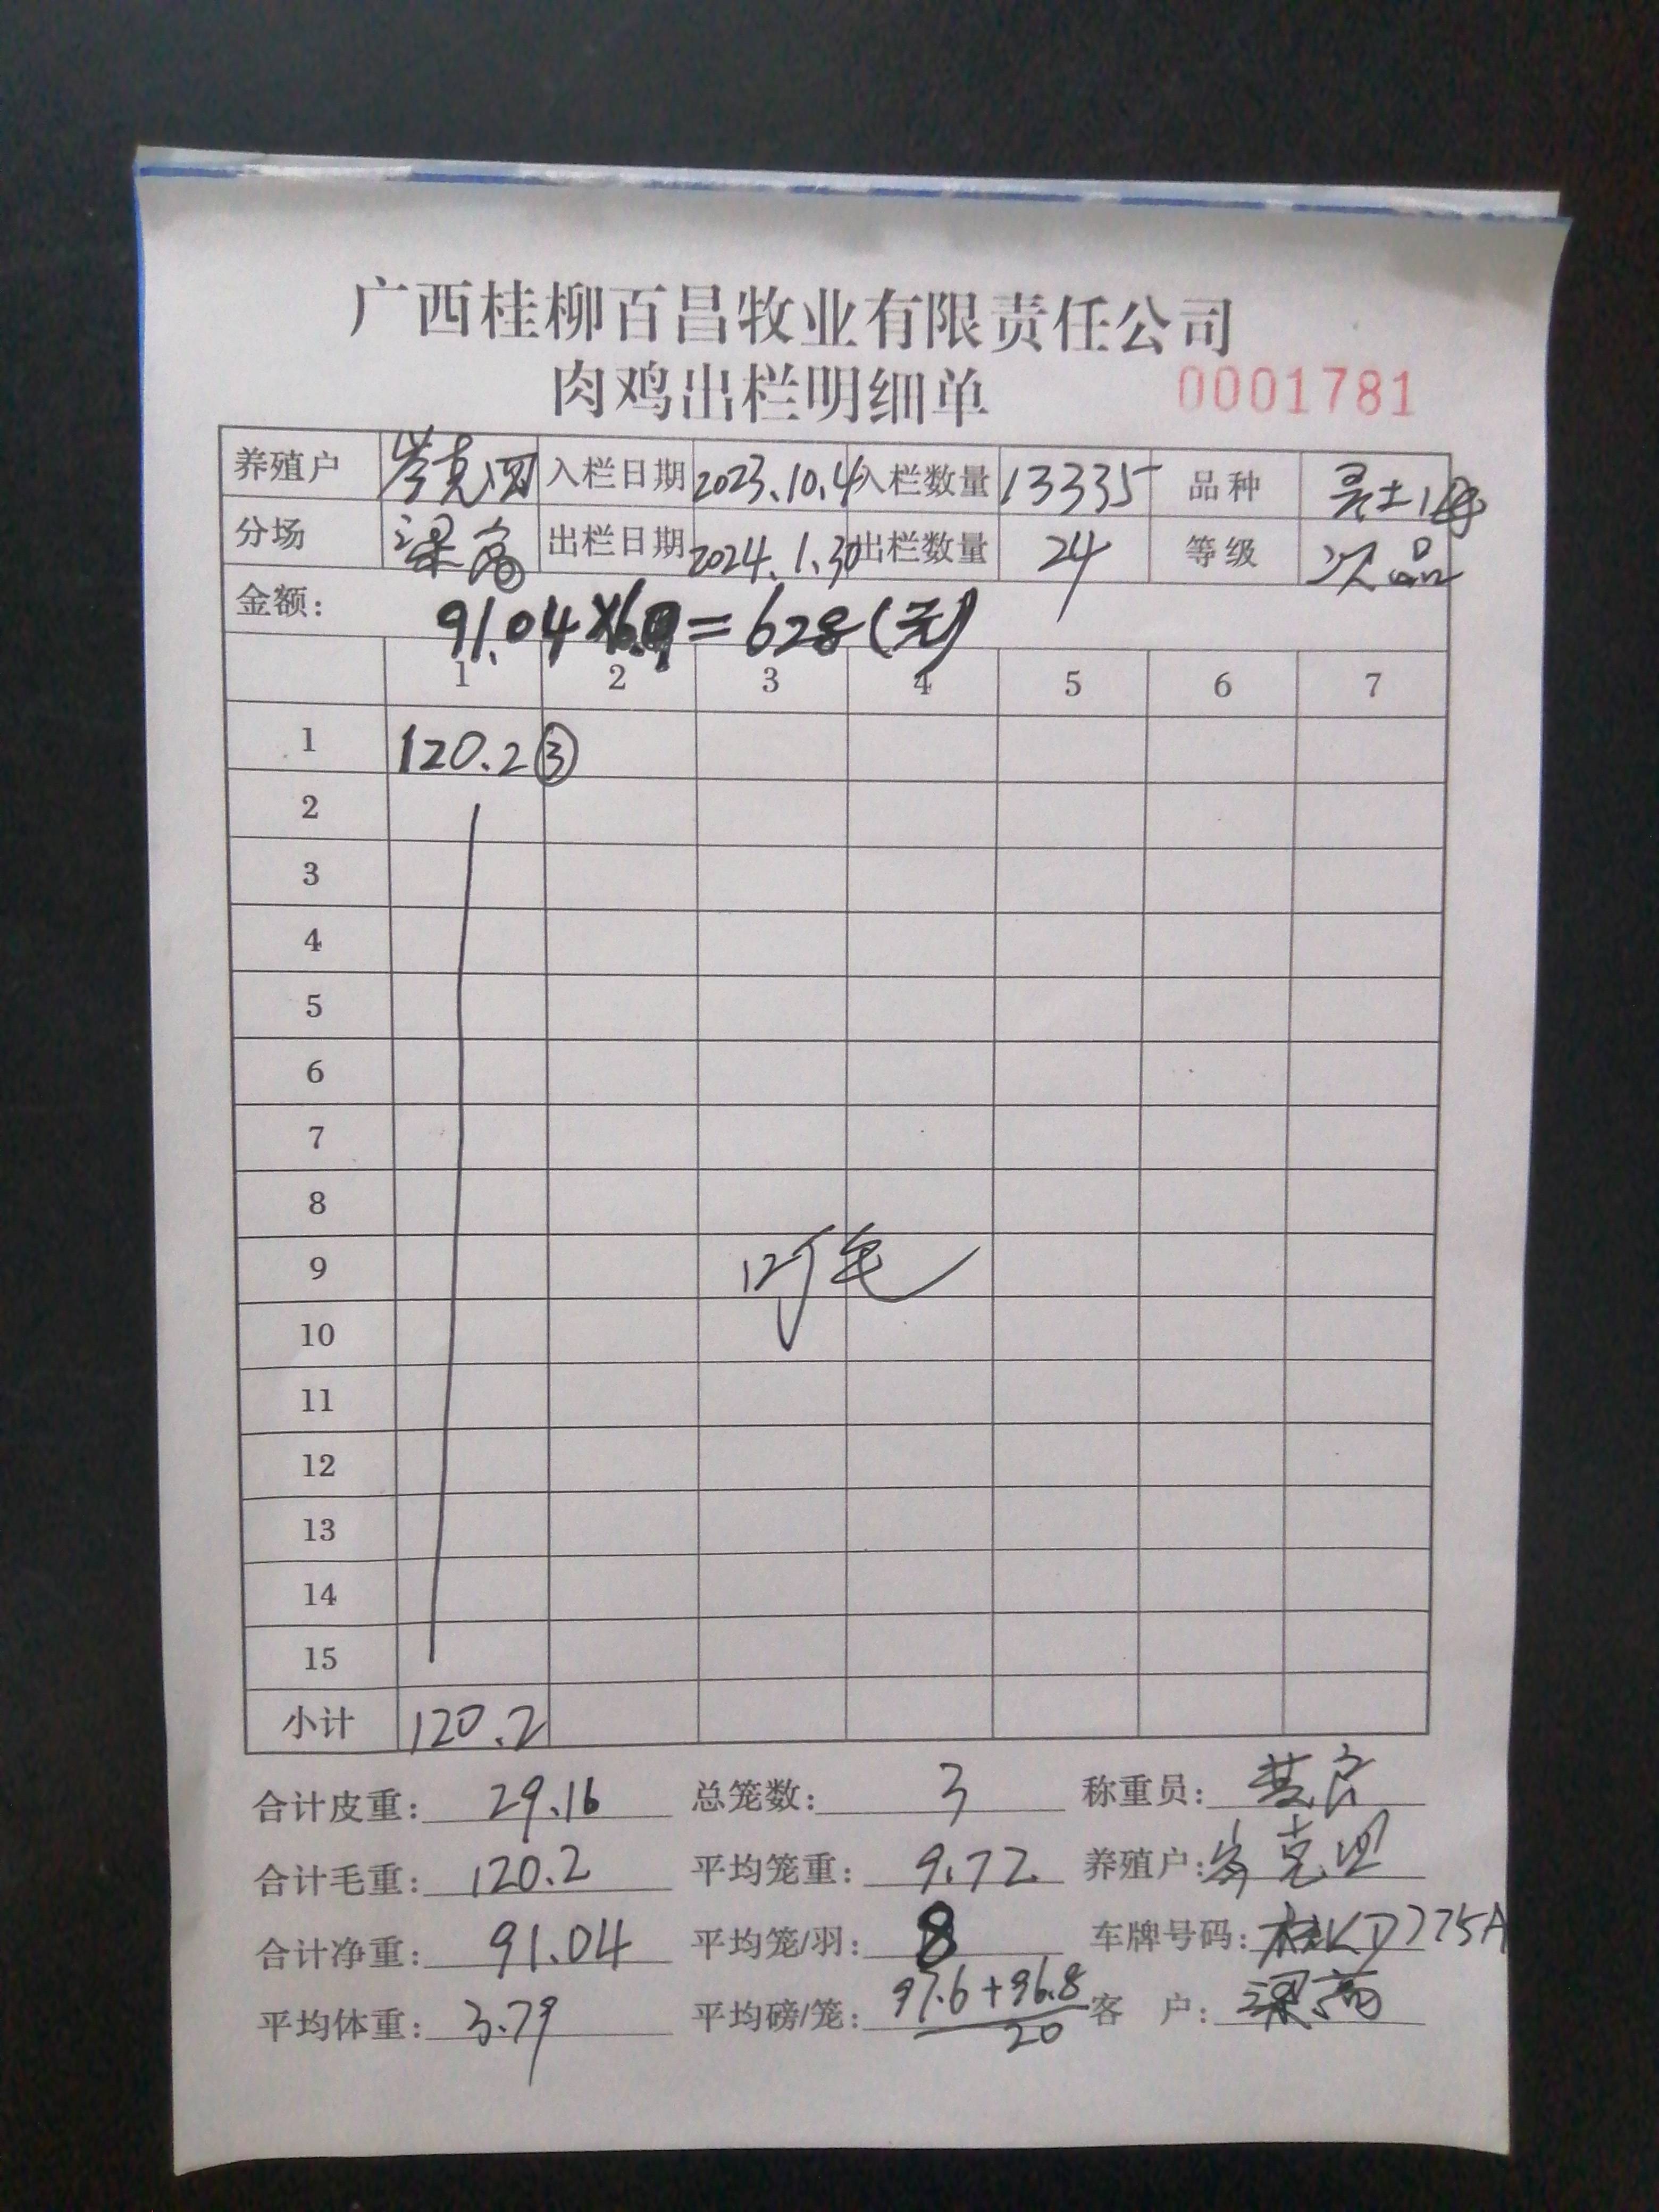 广西桂柳百昌牧业有限责任公司
肉鸡出栏明细单 0001781
养殖户 岑克 入栏日期 2023.10.4 入栏数量 13335 品种 土
分场 梁高 出栏日期 2024.1.30 出栏数量 24 等级 次品
金额: 91.04×6.9=628(元)
1 2 3 4 5 6 7
1 120.2 ③
2
3
4
5
6
7
8
9
10
11
12
13
14
15
小计 120.2
合计皮重: 29.16 总笼数: 3 称重员:
合计毛重: 120.2 平均笼重: 9.72 养殖户: 岑克
合计净重: 91.04 平均笼/羽: 8 车牌号码: 桂KD775A
平均体重: 3.79 平均磅/笼: 97.6+96.8 客 户: 梁高
20